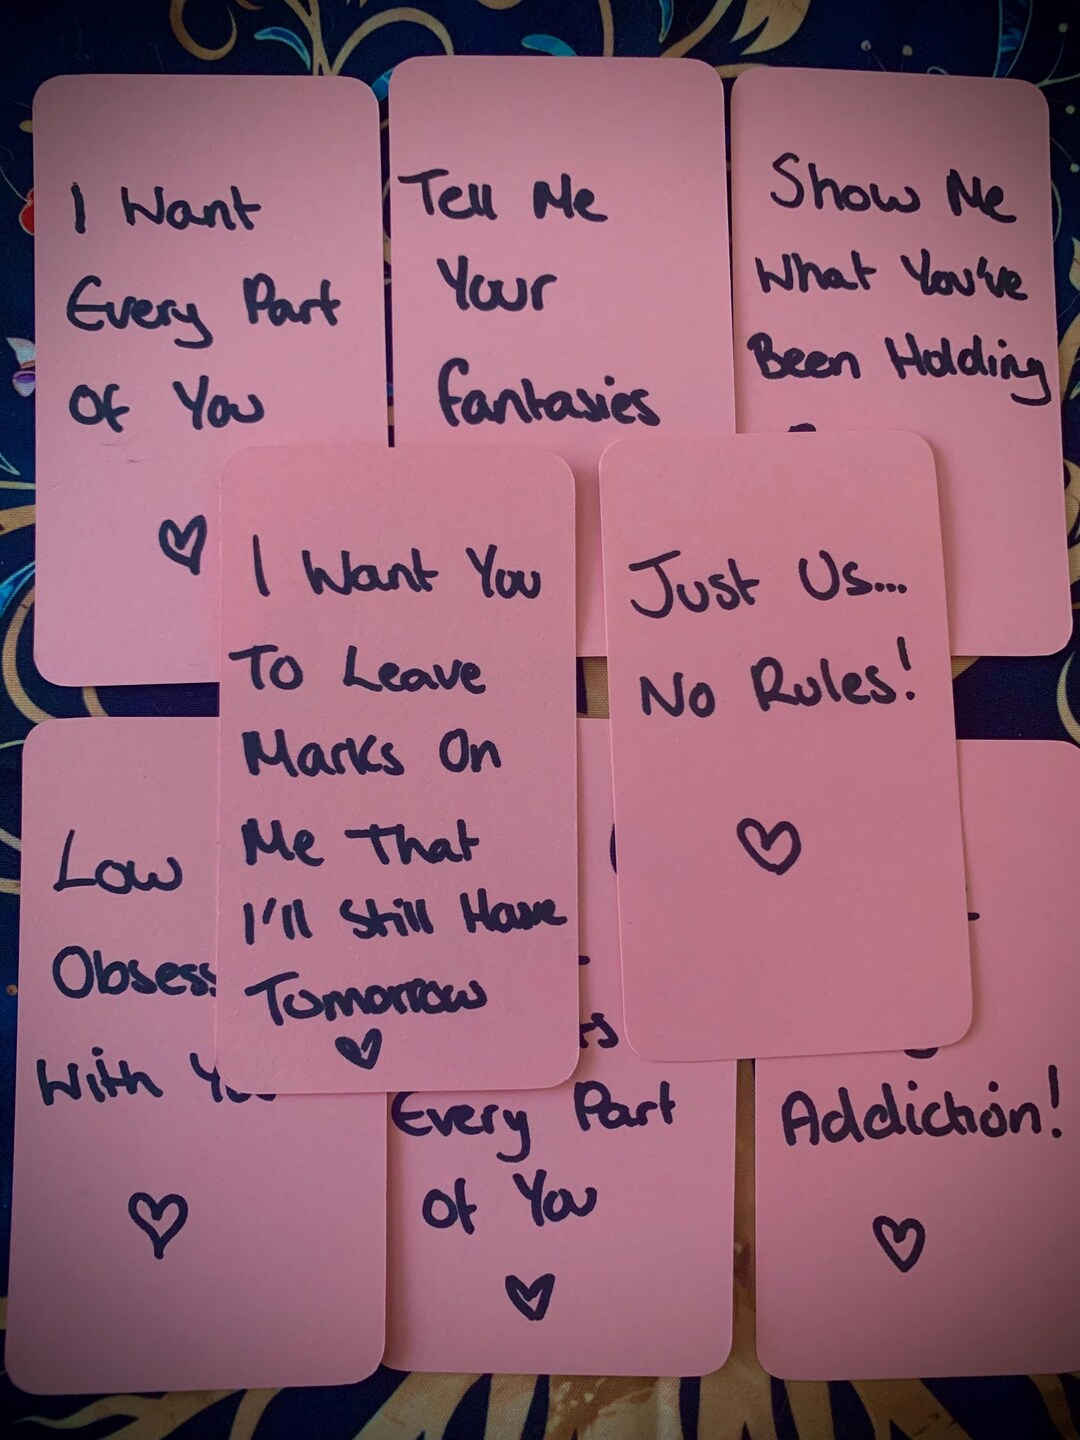 I Want
Every Part
Of You
Tell Me
Your
Fantasies
Show Me
What You've
Been Holding
I Want You
To Leave
Marks On
Me That
I'll Still Have
Tomorrow
Just Us...
No Rules!
Low
Obsess
With
Every Part
Of You
Addiction!